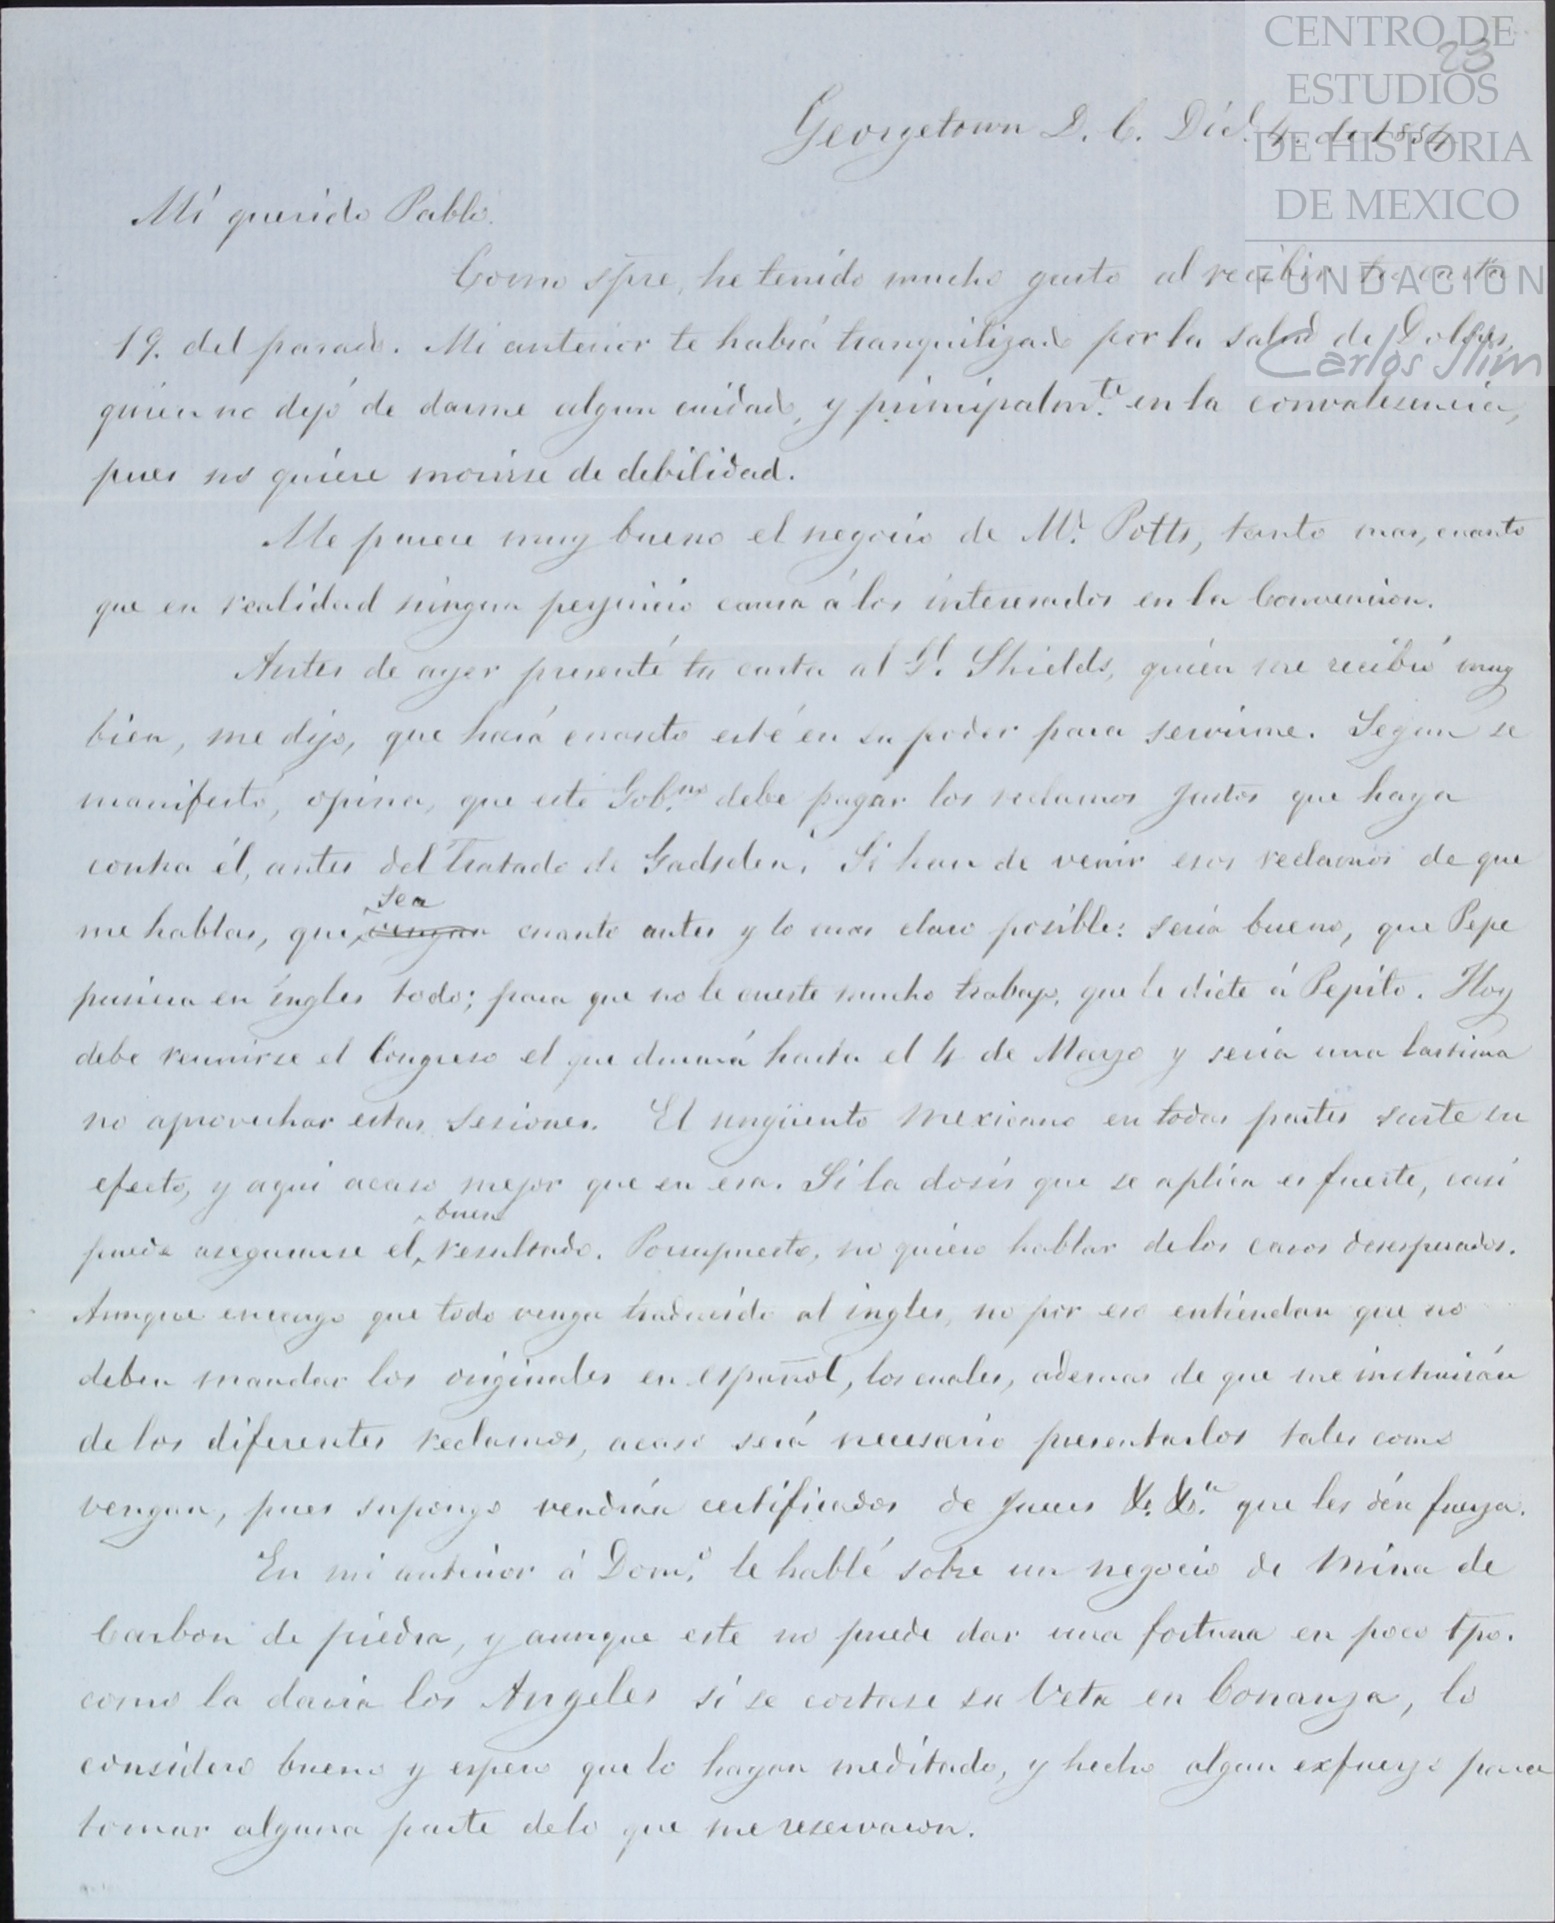 CENTRO DE
ESTUDIOS
DE HISTORIA
DE MEXICO
FUNDACIÓN
Carlos Slim
23
Georgetown D. C. Dic.e 4. de 1854
Mi querido Pablo.
Como spre, he tenido mucho gusto al recibir tu carta
19. del pasado. Mi anterior te habrá tranquilizado por la salud de Dolores,
quien no dejó de darme algun cuidado, y principalm.te en la convalesencia,
pues no quiere morirse de debilidad.
Me parece muy bueno el negocio de Mr. Potts, tanto mas, cuanto
que en realidad ningun perjuicio causa á los interesados en la Convencion.
Antes de ayer presenté tu carta al Gl. Shields, quien me recibió muy
bien, me dijo, que hará cuanto esté en su poder para servirme. Segun se
manifestó, opina, que este Gob.no debe pagar los reclamos justos que haya
contra él, antes del Tratado de Gadsden. Si han de venir esos reclamos de que
me hablas, que sea vengan cuanto antes y lo mas claro posible: seria bueno, que Pepe
pusiera en ingles todo; para que no le cueste mucho trabajo, que le dicte á Pepito. Hoy
debe reunirse el Congreso el que durará hasta el 4 de Marzo y seria una lastima
no aprovechar estas sesiones. El ungüento mexicano en todas partes surte su
efecto, y aqui acaso mejor que en esa. Si la dosis que se aplica es fuerte, casi
puede asegurarse el buen resultado. Porsupuesto, no quiero hablar delos casos desesperados.
Aunque encargo que todo venga traducido al ingles, no por eso entiendan que no
deben mandar los originales en español, los cuales, ademas de que me instruirán
de los diferentes reclamos, acaso será necesario presentarlos tales como
vengan, pues supongo vendrán certificados de Jueces &. &.a que les dén fuerza.
En mi anterior á Dom.o le hablé sobre un negocio de Mina de
Carbon de piedra, y aunque este no puede dar una fortuna en poco tpo.
como la daria los Angeles si se cortase su Veta en Bonanza, lo
considero bueno y espero que lo hayan meditado, y hecho algun exfuerzo para
tomar alguna parte delo que me reservaron.